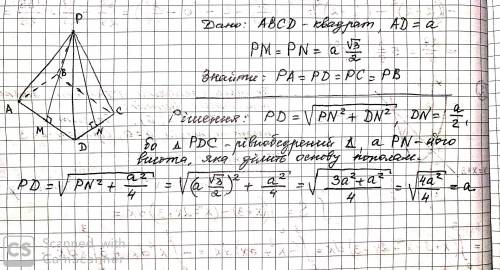 P
B
A
C
M
N
D
Дано: ABCD - квадрат, AD = a
PM = PN = a √3/2
Знайти: PA = PD = PC = PB
Рішення: PD = √(PN² + DN²), DN = a/2,
бо Δ PDC - рівнобедрений Δ, а PN - його
висота, яка ділить основу пополам.
PD = √(PN² + a²/4) = √((a √3/2)² + a²/4) = √((3a² + a²)/4) = √(4a²/4) = a
CS
Scanned with
CamScanner